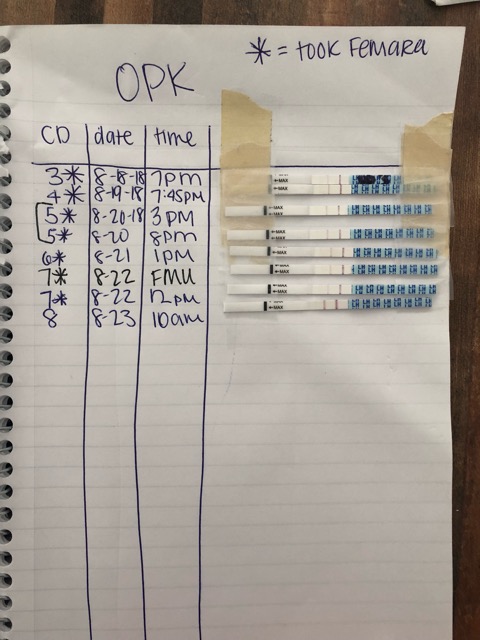 * = took Femara
OPK
CD date time
3* 8-18-18 7pm
4* 8-19-18 7:45pm
5* 8-20-18 3pm
5* 8-20 8pm
6* 8-21 1pm
7* 8-22 FMU
7* 8-22 12pm
8 8-23 10am
MAX
MAX
MAX
MAX
MAX
MAX
MAX
MAX